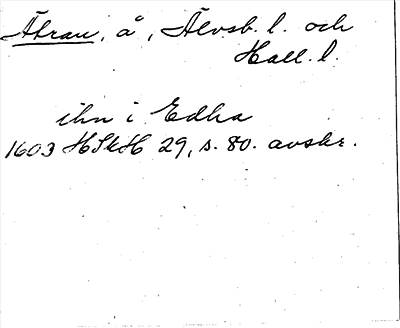 Ätran, å, Älvsb. l. och
Hall. l.
ihn i Edha
1603 HSkH 29, s. 80. avskr.